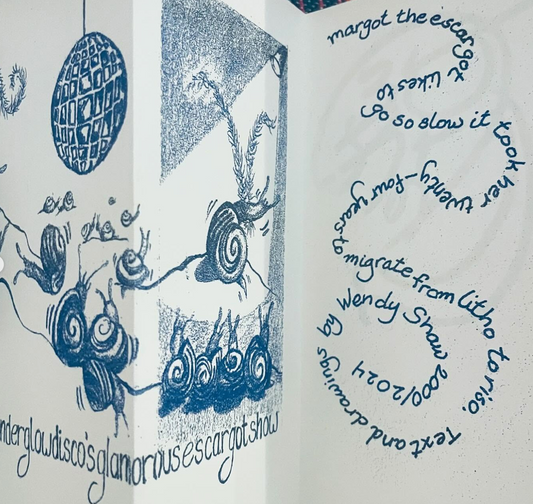 nderglowdisco'sglamorousescargotshow
margot the escargot likes to
go so slow it took her twenty-four years to migrate from litho to riso.
Text and drawings by Wendy Shaw 2000/2024